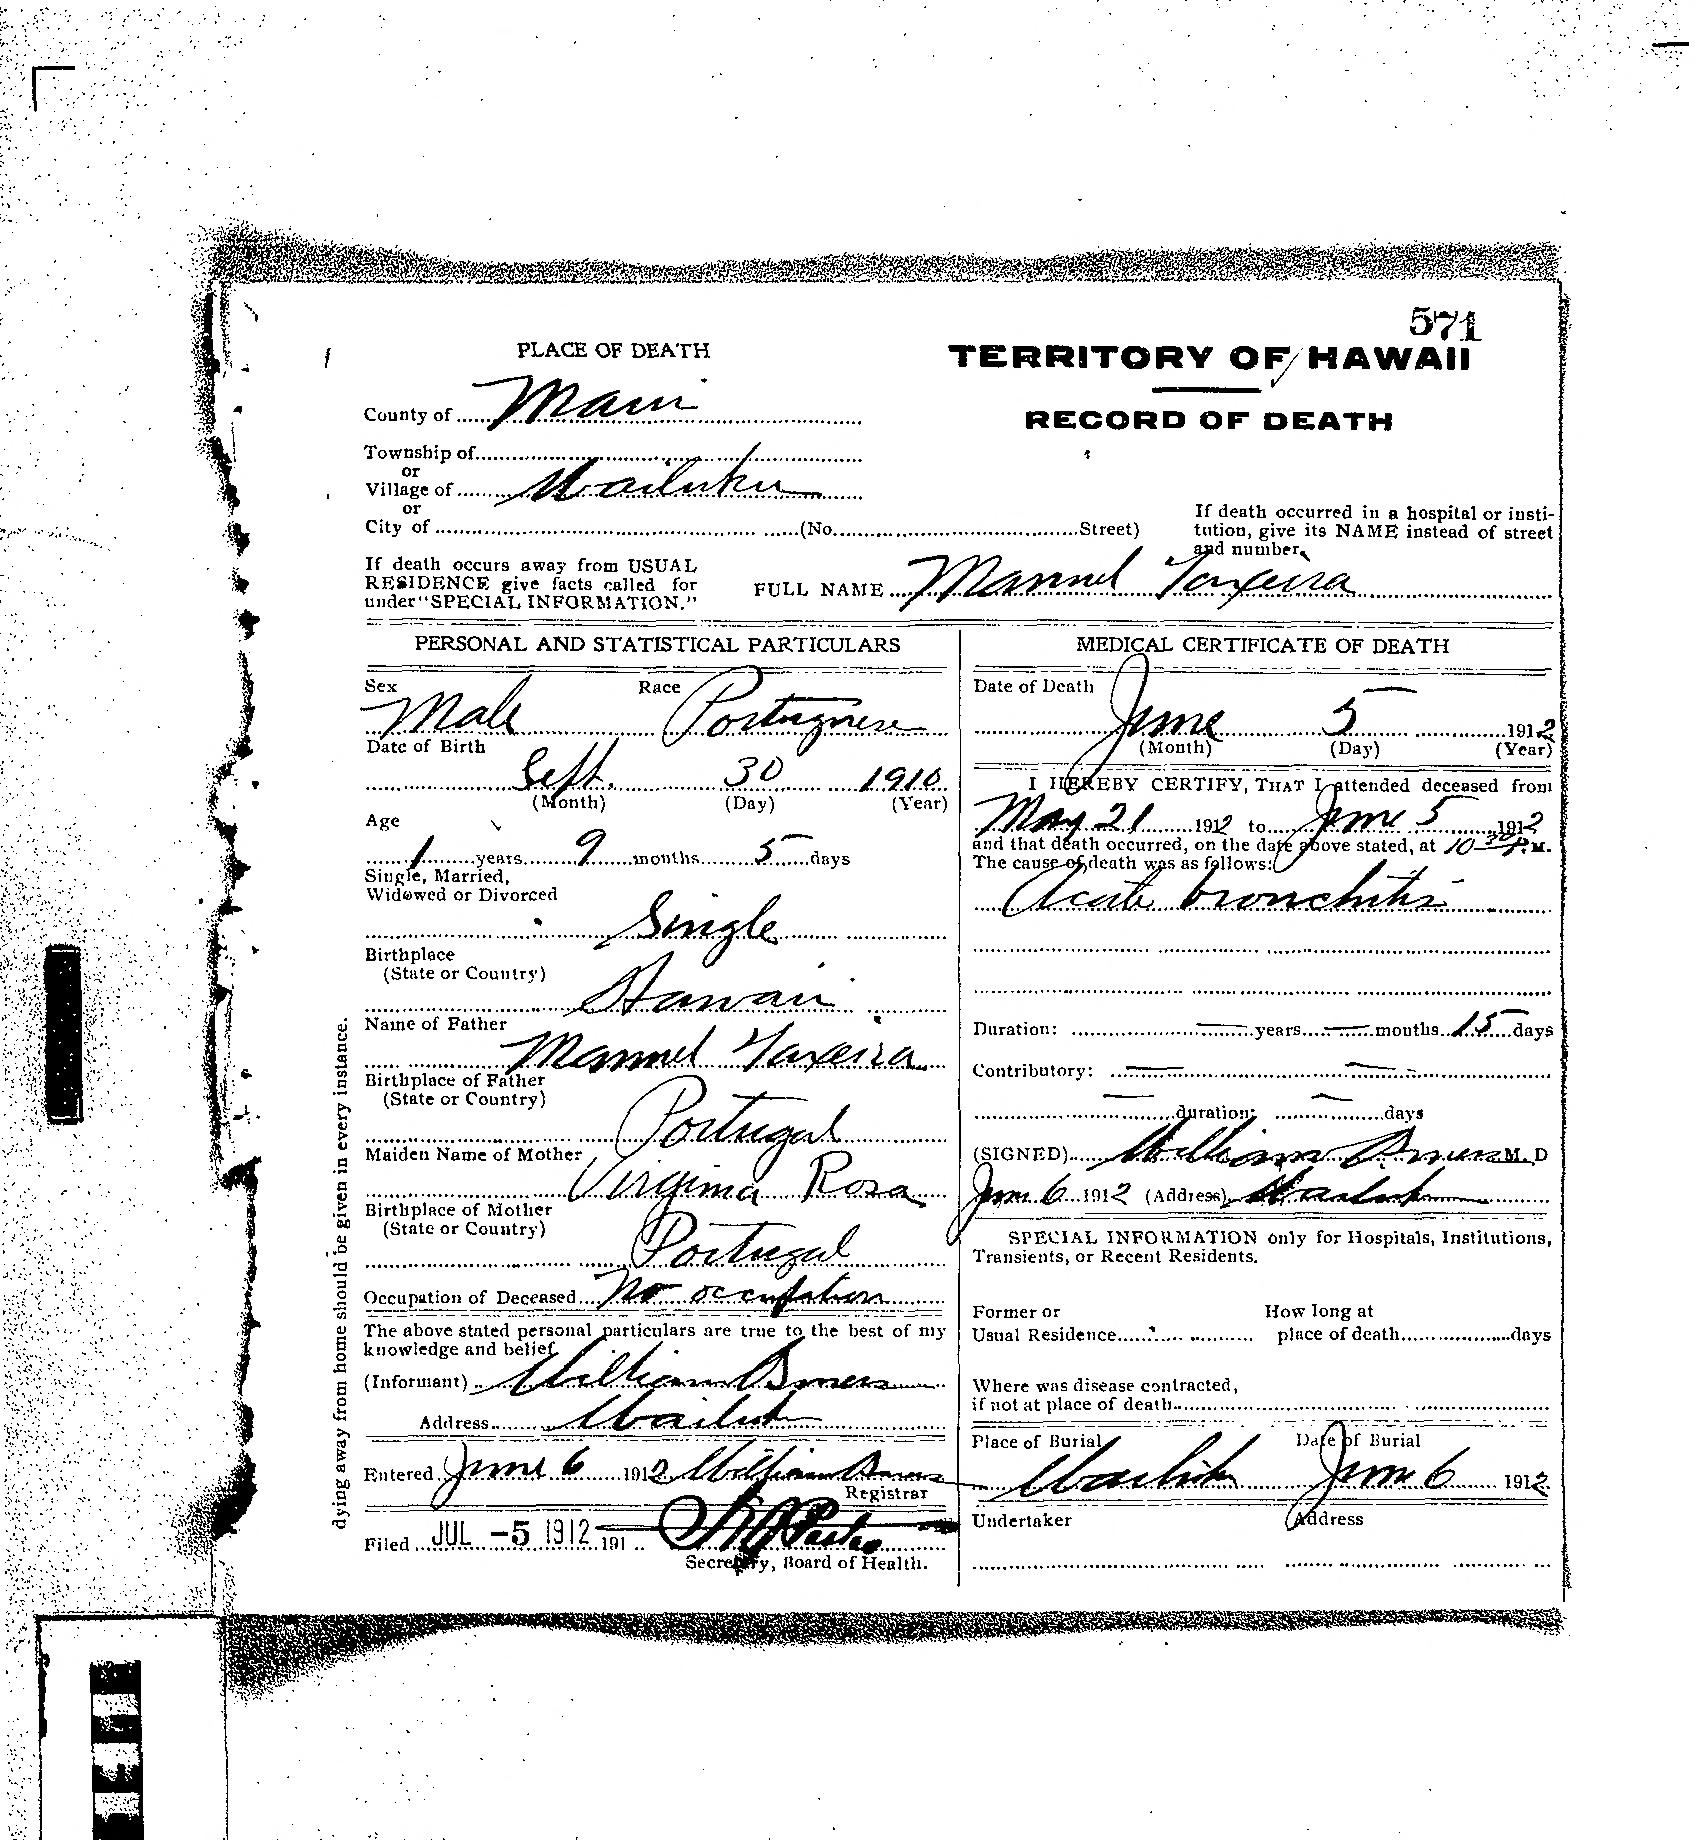 571
PLACE OF DEATH
TERRITORY OF HAWAII
RECORD OF DEATH
County of Maui
Township of
or
Village of Wailuku
or
City of (No. Street)
If death occurred in a hospital or insti-
tution, give its NAME instead of street
and number.
If death occurs away from USUAL
RESIDENCE give facts called for
under "SPECIAL INFORMATION."
FULL NAME Manuel Taxeira
PERSONAL AND STATISTICAL PARTICULARS
Sex Race
Male Portuguese
Date of Birth
Sept. 30 1910
(Month) (Day) (Year)
Age
1 years 9 months 5 days
Single, Married,
Widowed or Divorced
Single
Birthplace
(State or Country)
Hawaii
Name of Father
Manuel Taxeira
Birthplace of Father
(State or Country)
Portugal
Maiden Name of Mother
Virginia Rosa
Birthplace of Mother
(State or Country)
Portugal
Occupation of Deceased No occupation
The above stated personal particulars are true to the best of my
knowledge and belief.
(Informant) William
Address Wailuku
Entered June 6 1912 William
Registrar
Filed JUL -5 1912 191
Secretary, Board of Health.
dying away from home should be given in every instance.
MEDICAL CERTIFICATE OF DEATH
Date of Death
June 5 1912
(Month) (Day) (Year)
I HEREBY CERTIFY, THAT I attended deceased from
May 21 1912 to June 5 1912
and that death occurred, on the date above stated, at 10 30 P.M.
The cause of death was as follows:
Acute bronchitis
Duration: — years — months 15 days
Contributory: — —
— duration: — days
(SIGNED) William M. D
June 6 1912 (Address) Wailuku
SPECIAL INFORMATION only for Hospitals, Institutions,
Transients, or Recent Residents.
Former or How long at
Usual Residence place of death days
Where was disease contracted,
if not at place of death
Place of Burial Date of Burial
Wailuku June 6 1912
Undertaker Address